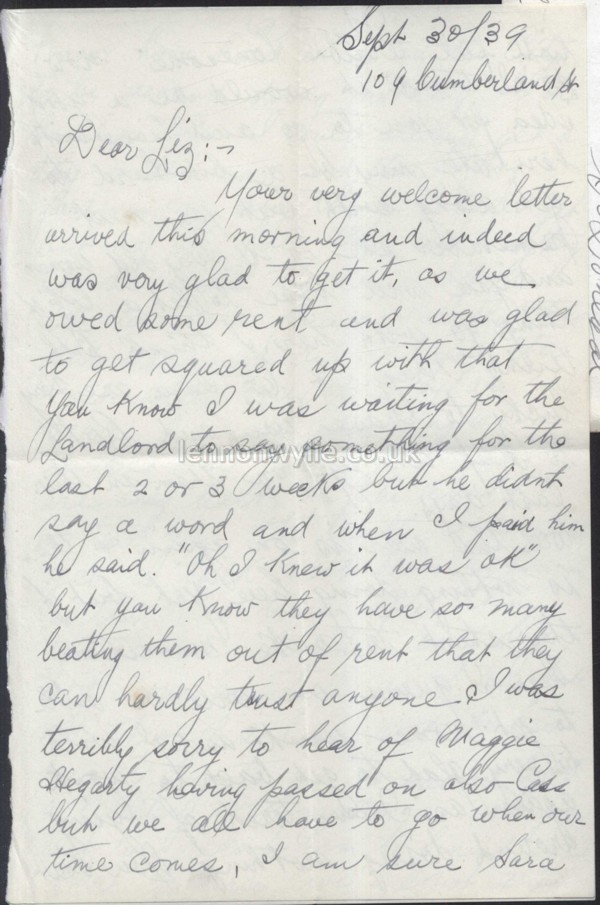 Sept 30/39
109 Cumberland St
Dear Liz:-
Your very welcome letter
arrived this morning and indeed
was very glad to get it, as we
owed some rent and was glad
to get squared up with that
You know I was waiting for the
Landlord to say something for the
lennonwylie.co.uk
last 2 or 3 weeks but he didnt
say a word and when I paid him
he said. "Oh I knew it was ok"
but you know they have so many
beating them out of rent that they
can hardly trust anyone I was
terribly sorry to hear of Maggie
Hegarty having passed on also Cass
but we all have to go when our
time comes, I am sure Sara